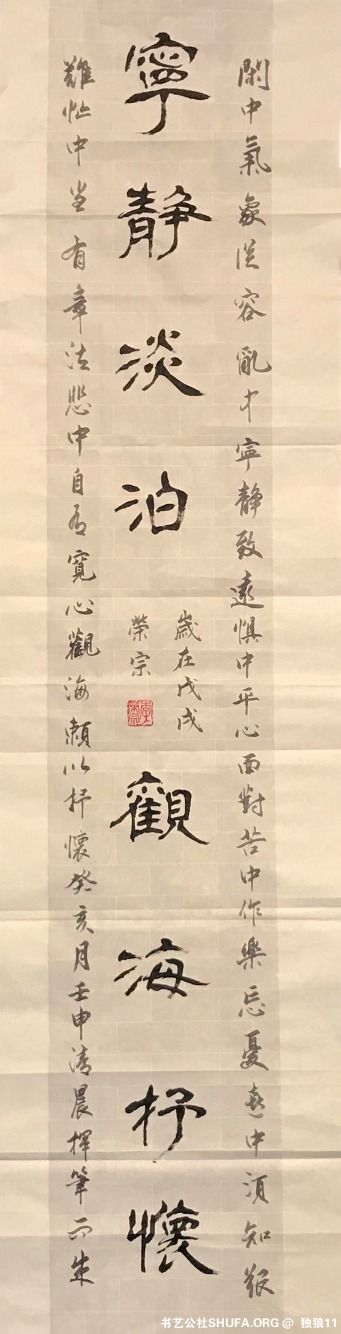 閑中氣象從容亂中寧靜致遠惧中平心面對苦中作樂忘憂喜中須知艱
寧靜淡泊
歲在戊戌
榮宗
觀海抒懷
難忙中坐有章法悲中自有寬心觀海賴以抒懷癸亥月壬申清晨揮筆而朱
书艺公社SHUFA.ORG @ 独狼11